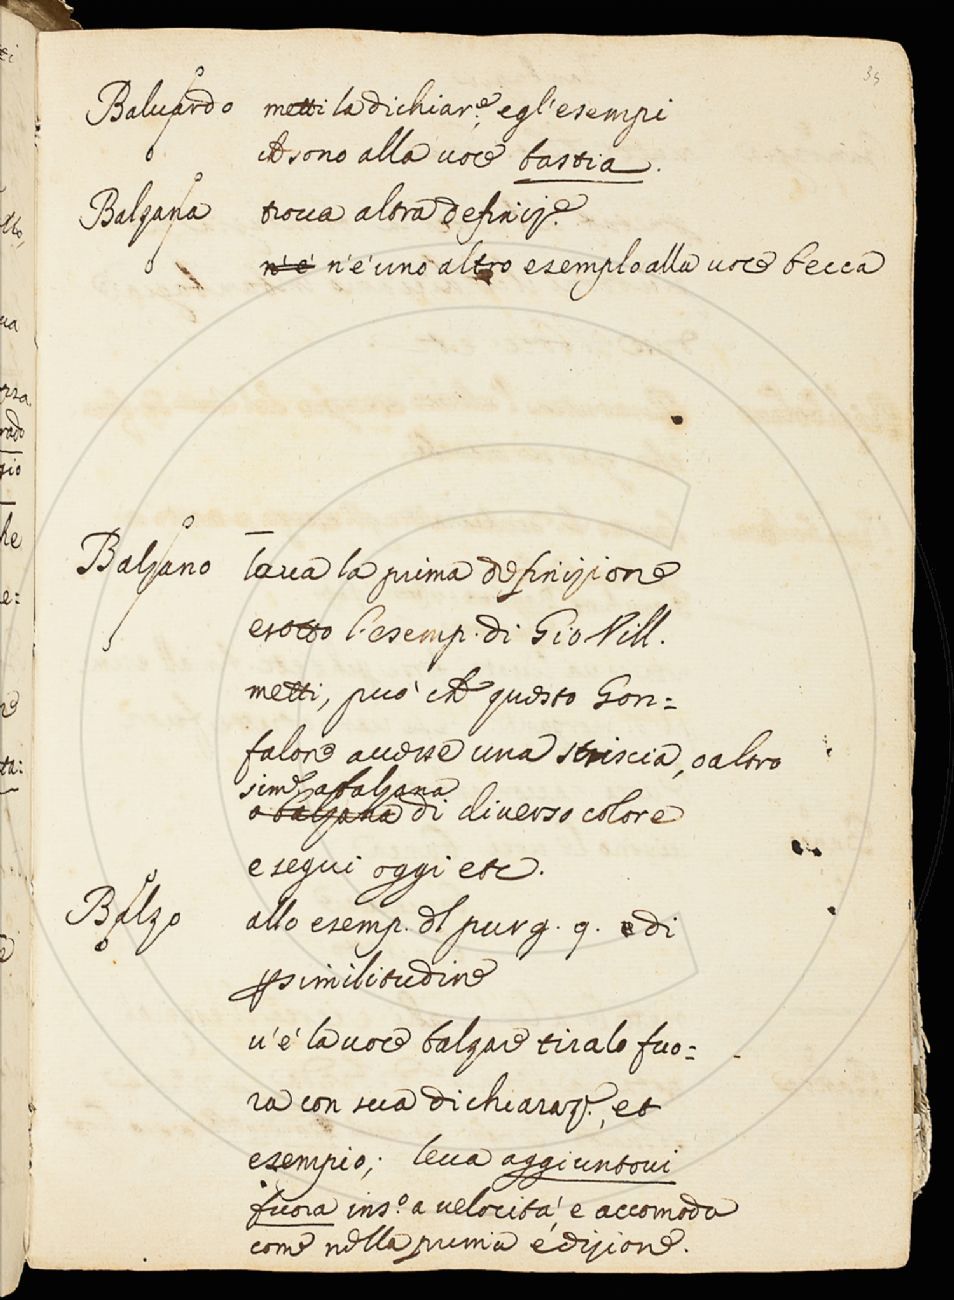 35
Baluardo metti la dichiar.e egl'esempi
che sono alla uoce bastia.
Balzana troua altra definiz.e
n'è n'è uno altro esemplo alla uoce becca
Balzano laua la prima definizione
e sotto l'esemp. di Gio Vill.
metti, può che questo Gon=
falone auesse una striscia, o altro
sim.e a balzana
o balzana di diuerso colore
e segui oggi etc.
Balzo allo esemp. del purg. 9. e di
p similitudine
u'è la uoce balzare tirala fuo=
ra con sua dichiaraz.e, et
esempio; leua aggiuntoui
fuora ins.o a velocità, e accomoda
come nella prima edizione.